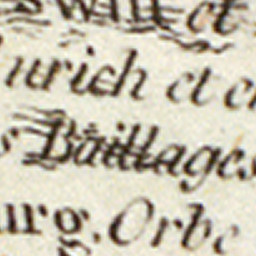 et
urich et c
Baillages
urg. Orbe